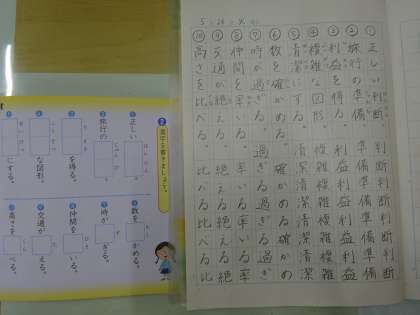 ①正しい判断。判断判断判断
②旅行の準備。準備準備準備
③利益を得る。利益利益利益
④複雑な図形。複雑複雑複雑
⑤清潔にする。清潔清潔清潔
⑥数を確かめる。確かめる確かめ
⑦時が過ぎる。過ぎる過ぎる
⑧仲間を率いる。率いる率いる率
⑨交通が絶える。絶える絶える絶
⑩高さを比べる。比べる比べる比
漢字を書きましょう。
正しい
旅行の
を得る。
な図形
にする。
数を かめる。
時が ぎる。
仲間を いる。
交通が える。
高さを べる。